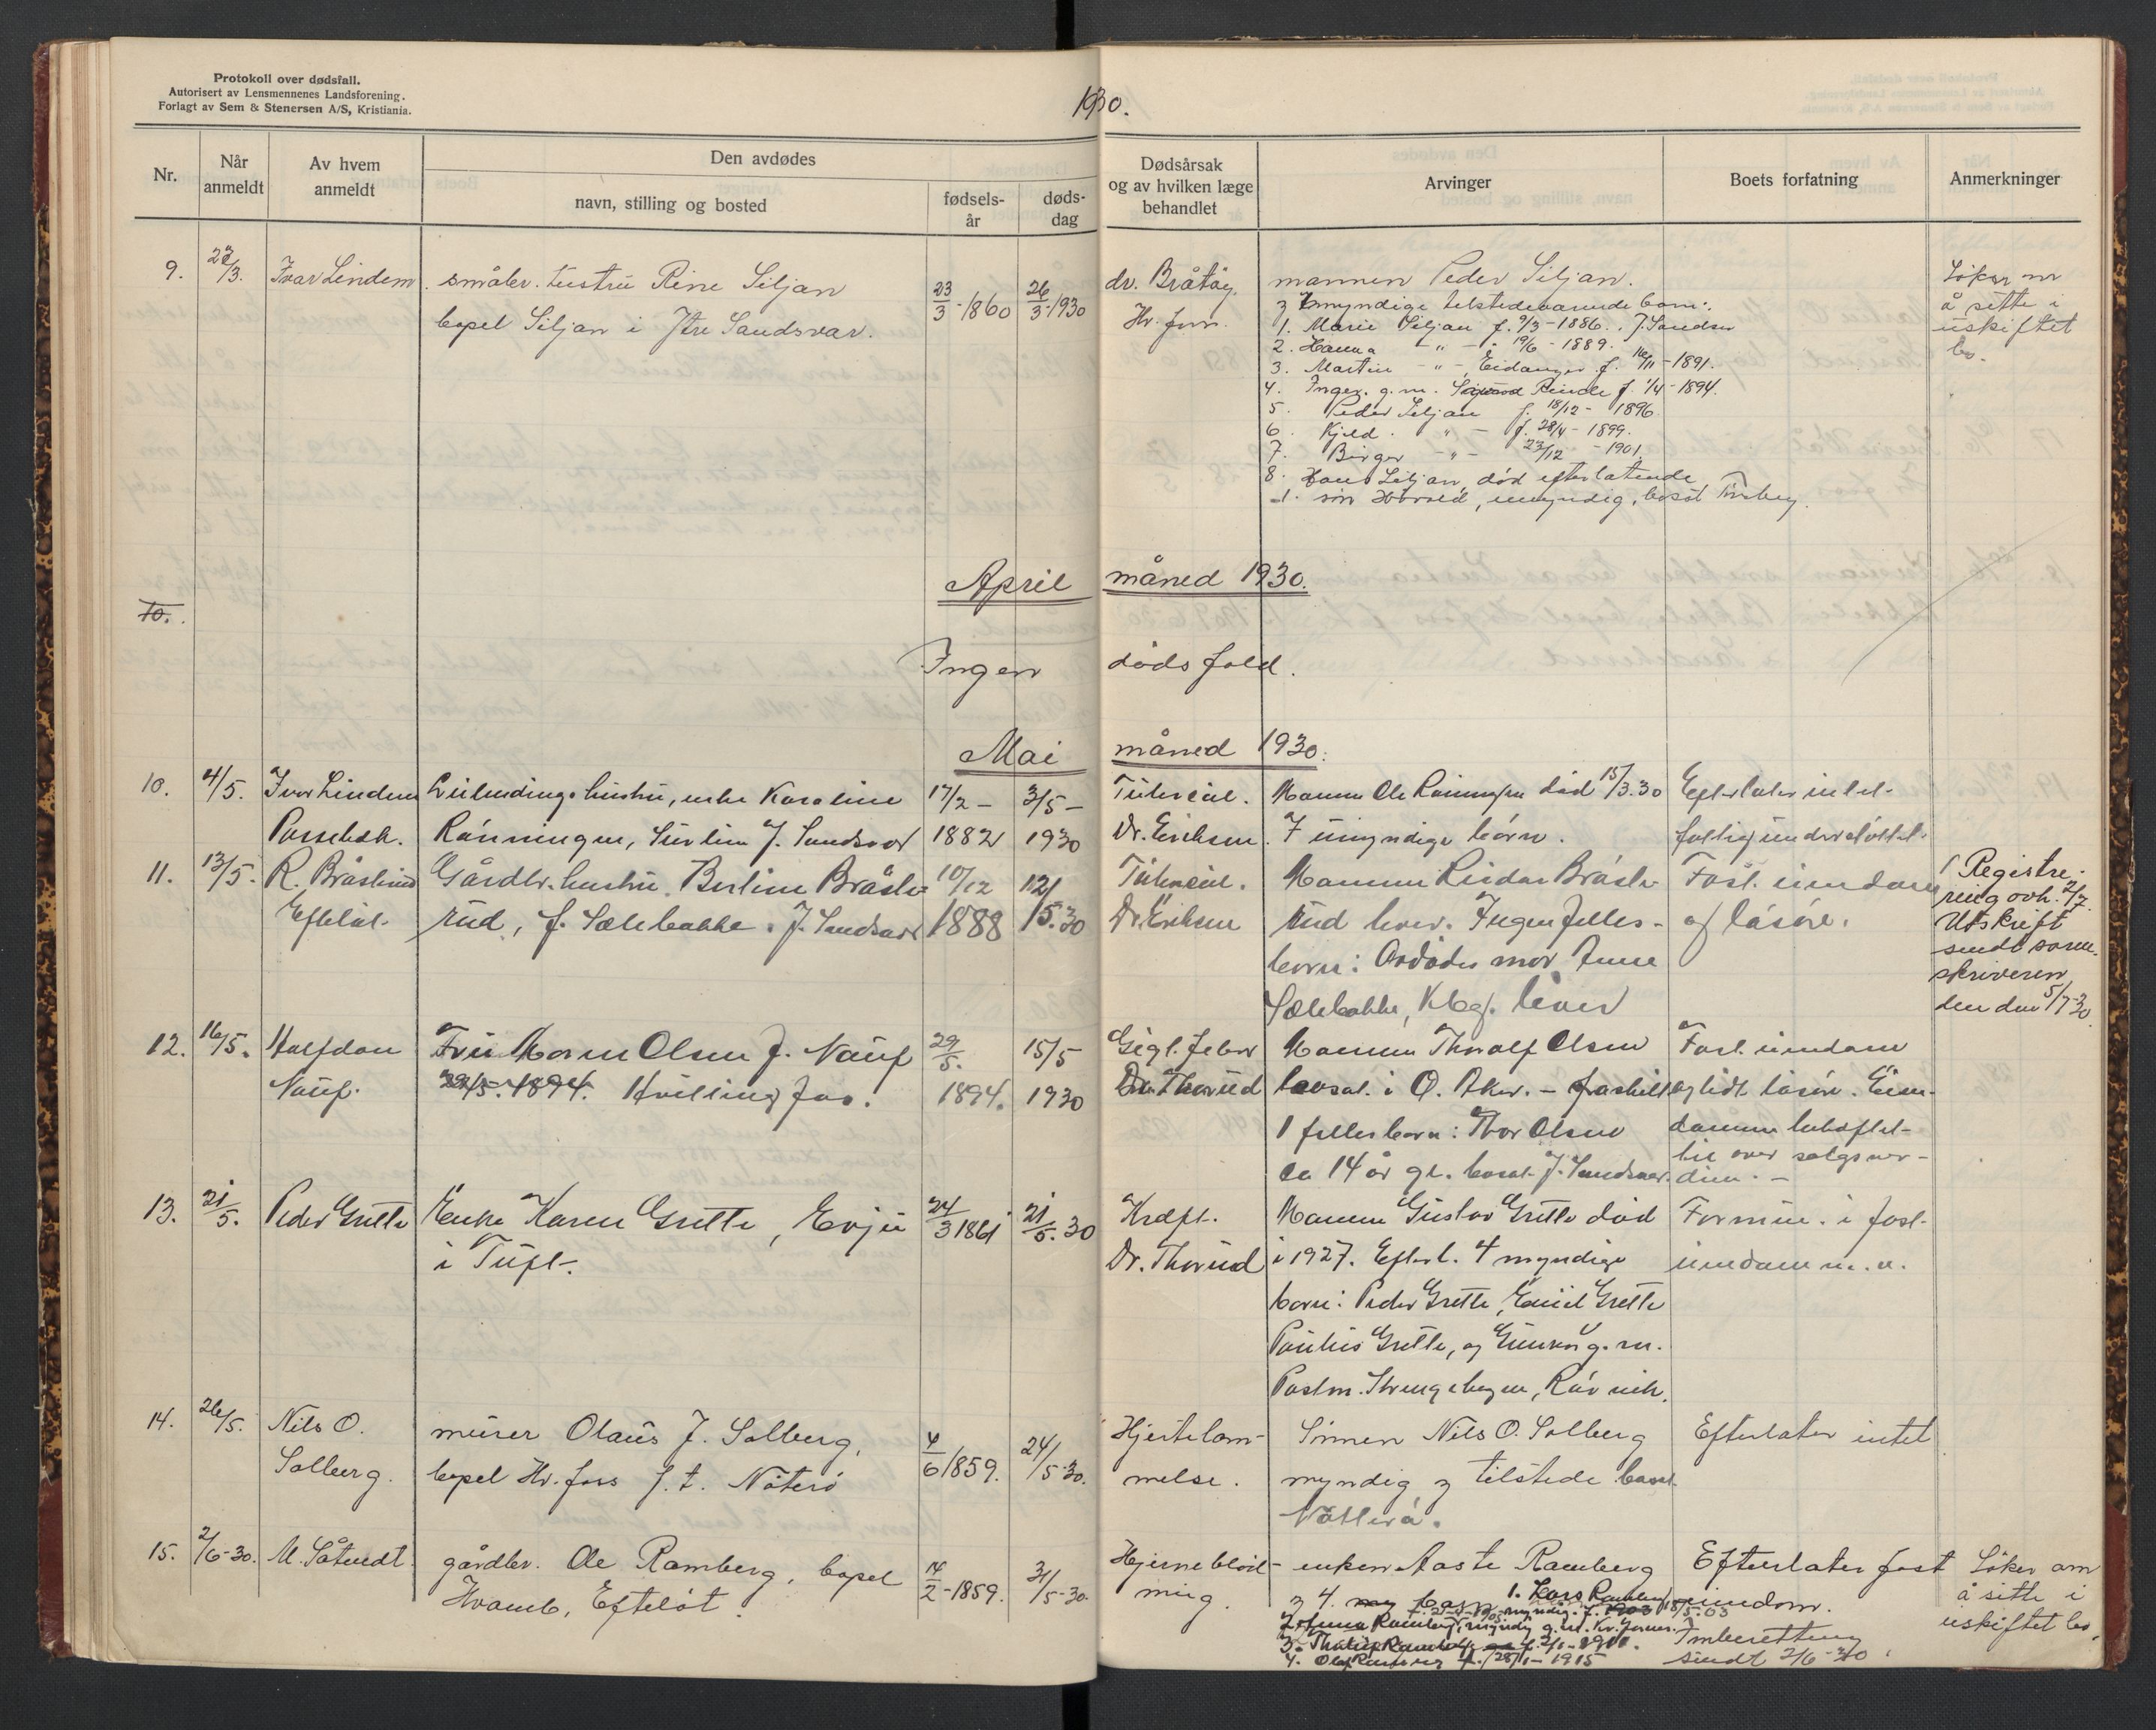 Protokoll over dødsfall.
Autorisert av Lensmennenes Landsforening.
Forlagt av Sem & Stenersen A/S, Kristiania.
1930.
Nr.
Når anmeldt
Av hvem anmeldt
Den avdødes
navn, stilling og bosted
fødsels-år
døds-dag
Dødsårsak og av hvilken læge behandlet
Arvinger
Boets forfatning
Anmerkninger
9. 28/3. Ivar Lindem småbr. hustru Rine Siljan 23/3-1860 26/3-1930
bopel Siljan i Ytre Sandsvær.
dr. Bråtøy.
Hv.
mannen Peder Siljan.
7 myndige tilstedeværende barn:
1. Marie Siljan f. 9/3-1886. J. Sandsv
2. Hanna -"- 19/6-1889.
3. Martin -"- Eidanger f. 16/11-1891.
4. Inger. g.m. Sigurd Rinde f. 1/4-1894.
5. Peder Siljan f. 18/12-1896
6. Kjeld. " - f. 28/4-1899.
7. Birger -"- 23/12-1901.
8. Hans Siljan, død efterlatende
1. søn Harald, umyndig, bosat Tønsberg.
Søker om
å sitte i
uskiftet
bo.
April måned 1930.
10.
Ingen dødsfald.
Mai måned 1930.
10. 4/5. Ivar Lindem hustru, enke Karoline 17/2- 3/5-
Passebæk. Rønningen, J. Sandsvær 1882 1930
Tuberkul.
Dr. Eriksen.
Mannen Ole Rønningen død 15/3.30
7 umyndige børn.
Efterlater intet-
fattigunderstøttet.
11. 13/5. R. Bråtterud Gårdbr. hustru Berline Bråtte- 10/12 12/
Efteløt. rud, f. Sælebakke. J. Sandsvær 1888 5.30
Tuberkul.
Dr. Eriksen
Mannen Reidar Bråtte-
rud lever. Ingen felles-
børn: Avdødes mor Anne
Sælebakke, Kbg. lever
Fast eiendom
og løsøre.
Registre-
ring avh. 2/7.
Utskrift
sendt soren-
skriveren
den 5/7-30
12. 16/5. Halfdan Fru Maren Olsen f. Nauf 29/5. 15/5
Nauf. 29/5-1894. Hvittingfos. 1894. 1930
Gigt. feber
Dr. Thorud
Mannen Thoralf Olsen
bosat i Ø. Aker. - fraskilt
1 felles barn: Thor Olsen
ca 14 år gl. bosat J. Sandsvær.
Fast eiendom
og lidt løsøre. Eien-
dommen beheftet
til over salgsver-
dien. -
13. 21/5. Peder Grette Enke Karen Grette, Evju 24/3 1861 21/5.30
i Tuft.
Kræft.
Dr. Thorud
Mannen Gustav Grette død
i 1927. Efterl. 4 myndige
børn: Peder Grette, Emil Grette
Paulus Grette, og Gunvor g.m.
Postm.
Formue i fast
eiendom m.m.
14. 26/5. Nils O. murer Olaus J. Solberg, 4/6 1859. 24/5-30.
Solberg. bopel Hv.foss f.t. Nøterø
Hjertelam-
melse.
Sønnen Nils O. Solberg
myndig og tilstede bosat
Nøtterø.
Efterlater intet
15. 2/6-30. M. Såtvedt. gårdbr. Ole Ramberg, bopel 14/2-1859. 31/5-30.
Hvamb, Efteløt.
Hjerneblød-
ning.
enken Aaste Ramberg
og 4. barn 1. Lars Ramberg
myndig. f. 1903 18/5.03
2. Anna Ramberg, myndig g.m. Kr.
3. Ramberg f. 2/1-1911.
4. Olaf Ramberg f. 28/1-1915
Efterlater fast
eiendom.
Innberetning
sendt 2/6-30.
Søker om
å sitte i
uskiftet bo.